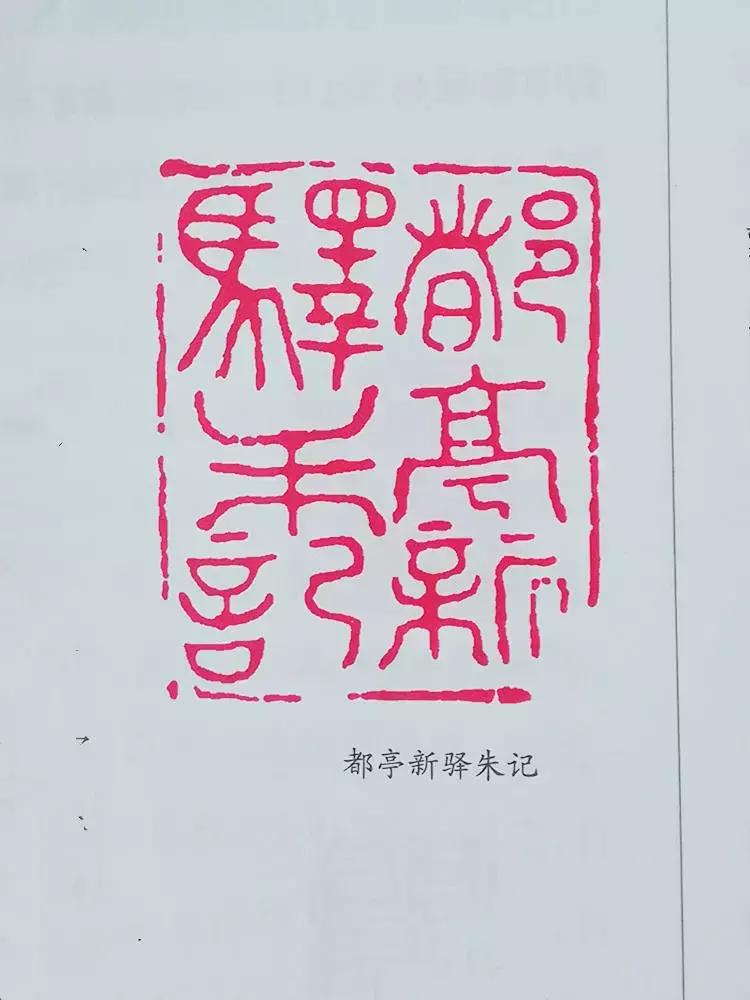 都亭新
驛朱記
都亭新驿朱记